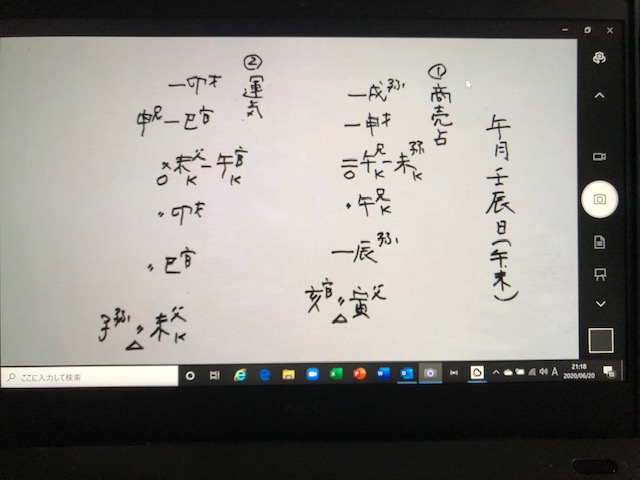 午月壬辰日(午未)
①商売占
一戌孫
一申才
午兄K-未孫K
午兄K
一辰孫
亥官〃寅父
△
②運気
一卯才
申兄一巳官
×未父K-午官K
〃卯才
〃巳官
子孫〃未父K
△
ここに入力して検索
A
21:18
2020/06/20